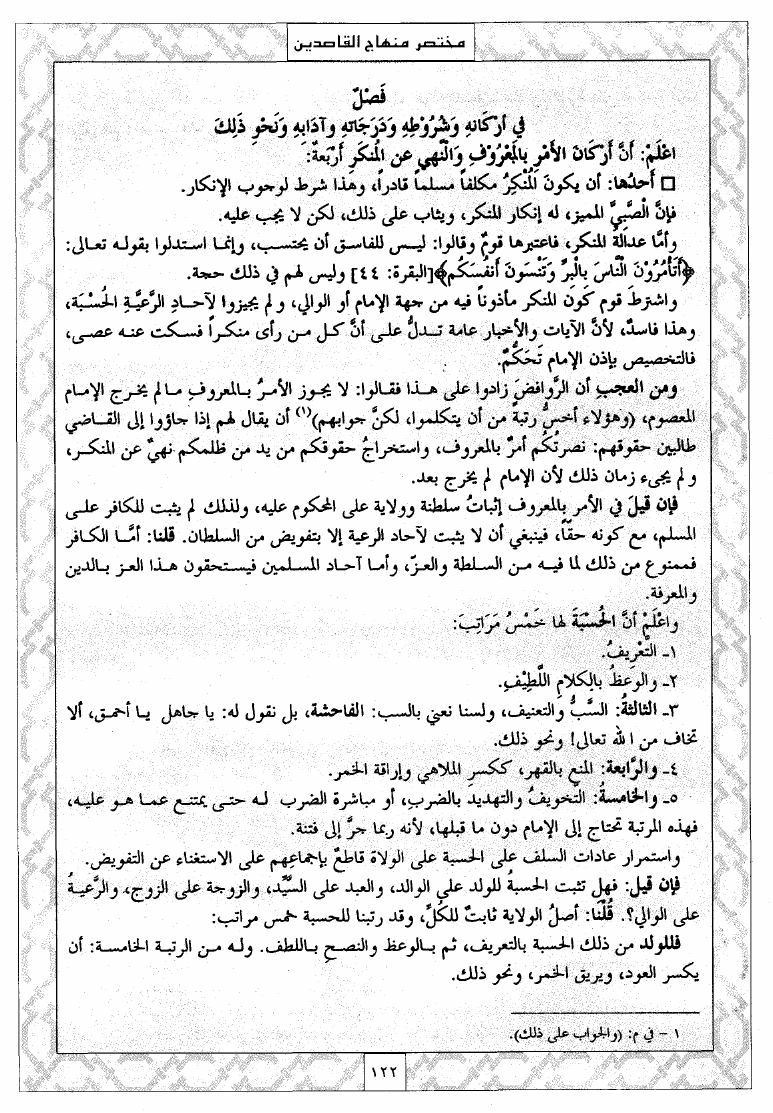 مختصر منهاج القاصدين
فَصْلٌ
في أرْكَانِهِ وَشُرُوْطِهِ وَدَرَجَاتِهِ وآدَابِهِ وَنَحْوِ ذَلِكَ
اعْلَمْ: أنَّ أرْكَانَ الأمْرِ بِالمَعْرُوْفِ وَالْنَّهي عن المُنكَرِ أرْبَعَةٌ:
□ أَحدُها: أن يكونَ المُنْكِرُ مكلفاً مسلماً قادراً، وهذا شرط لوجوب الإنكار.
فإنَّ الْصَّبِيَّ المميز، له إنكار المنكر، ويثاب على ذلك، لكن لا يجب عليه.
وأمَّا عدالةُ المنكر، فاعتبرها قومٌ وقالوا: ليس للفاسق أن يحتسب، وإنما استدلوا بقوله تعالى:
﴿أَتَأْمُرُوْنَ الْنَّاسَ بِالْبِرِّ وَتَنْسَونَ أَنفُسَكُم﴾[البقرة: ٤٤] وليس لهم في ذلك حجة.
واشترطَ قوم كَونَ المنكر مأذوناً فيه من جهة الإمام أو الوالي، ولم يجيزوا لآحادِ الرَّعيَّةِ الحُسْبَة،
وهذا فاسدٌ، لأنَّ الآيات والأخبار عامة تدلُّ على أنَّ كل من رأى منكراً فسكت عنه عصى،
فالتخصيص بإذن الإمام تَحَكُّمٌ.
ومن العجبِ أن الرَّوافضَ زادوا على هذا فقالوا: لا يجوز الأمرُ بالمعروفِ ما لم يخرج الإمام
المعصوم، (وهؤلاء أخسُّ رتبةً من أن يتكلموا، لكنَّ جوابهم)(١) أن يقال لهم إذا جاؤوا إلى القاضي
طالبين حقوقهم: نصرتُكُم أمرٌ بالمعروف، واستخراجُ حقوقكم من يد من ظلمكم نهيٌ عن المنكر،
ولم يجىء زمان ذلك لأن الإمام لم يخرج بعد.
فإن قيلَ في الأمر بالمعروف إثباتُ سلطنة وولاية على المحكوم عليه، ولذلك لم يثبت للكافر على
المسلم، مع كونه حقاً، فينبغي أن لا يثبت لآحاد الرعية إلا بتفويض من السلطان. قلنا: أمَّا الكافر
فممنوع من ذلك لما فيه من السلطة والعزّ، وأما آحاد المسلمين فيستحقون هذا العز بالدين
والمعرفة.
واعْلَمْ أنَّ الحُسْبَةَ لها خَمْسُ مَرَاتِبَ:
١ـ التَّعْرِيفُ.
٢ـ والوَعظُ بالكلامِ اللَّطِيْفِ.
٣ـ الثالثةُ: السَّبُّ والتعنيف، ولسنا نعني بالسب: الفاحشة، بل نقول له: يا جاهل يا أحمق، ألا
تخاف من الله تعالى! ونحو ذلك.
٤ـ والرَّابعة: المنع بالقهر، ككسرِ الملاهي وإراقة الخمر.
٥ـ والخامسةُ: التَّخويفُ والتهديد بالضربِ، أو مباشرة الضرب له حتى يمتنع عما هو عليه،
فهذه المرتبة تحتاج إلى الإمام دون ما قبلها، لأنه ربما جرَّ إلى فتنة.
واستمرار عادات السلف على الحسبة على الولاة قاطعٌ بإجماعِهم على الاستغناء عن التفويض.
فإن قيل: فهل تثبت الحسبةُ للولد على الوالد، والعبد على السَّيِّد، والزوجة على الزوج، والرَّعيةُ
على الوالي؟. قُلْنَا: أصلُ الولاية ثابتٌ للكُلِّ، وقد رتبنا للحسبة خمس مراتب:
فللولد من ذلك الحسبة بالتعريف، ثم بالوعظ والنصحِ باللطف. وله من الرتبة الخامسة: أن
يكسر العود، ويريق الخمر، ونحو ذلك.
١ - في م: (والجواب على ذلك).
١٢٢